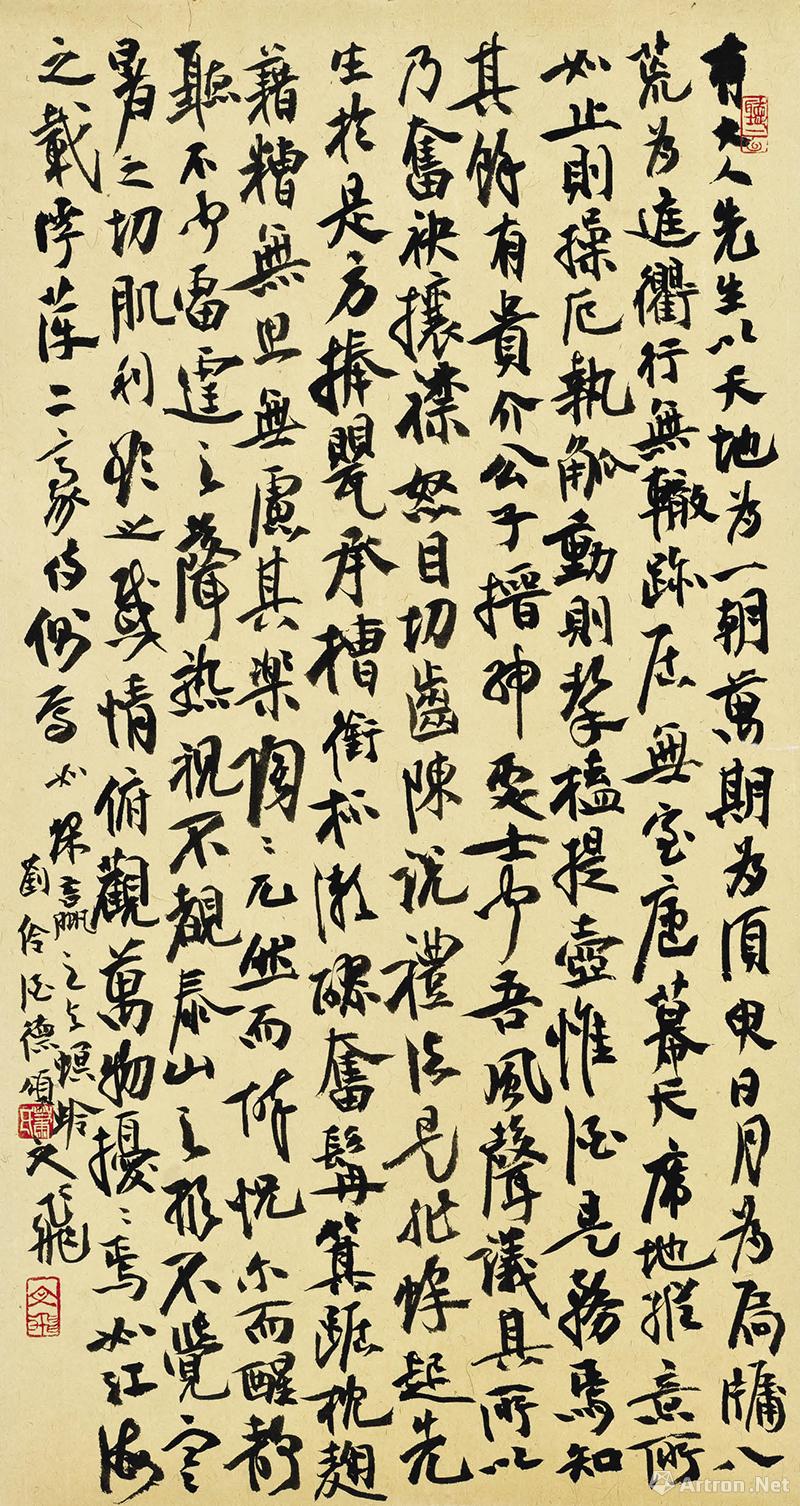 有大人先生以天地為一朝萬期為須臾日月為扃牖八
荒為庭衢行無轍跡居無室廬幕天席地縱意所
如止則操卮執觚動則挈榼提壺惟酒是務焉知
其餘有貴介公子搢紳處士聞吾風聲議其所以
乃奮袂攘襟怒目切齒陳說禮法是非蜂起先
生於是方捧甖承槽銜杯漱醪奮髯箕踞枕麴
藉糟無思無慮其樂陶〻兀然而醉恍尔而醒静
聽不聞雷霆之聲熟視不覩泰山之形不覺寒
暑之切肌利欲之感情俯觀萬物擾〻焉如江海
之載浮萍二豪侍側焉如蜾蠃之与螟蛉
劉伶酒德頌 文飛
文飛
Artron.Net